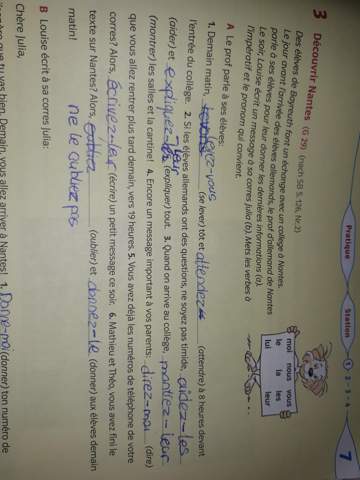 Pratique
Station
1 2 3 4
7
3 Découvrir Nantes (G 29) (nach SB S. 126, Nr. 2)
Des élèves de Bayreuth font un échange avec un collège à Nantes.
Le jour avant l'arrivée des élèves allemands, le prof d'allemand de Nantes
parle à ses élèves pour leur donner les dernières informations (a).
Le soir, Louise écrit un message à sa corres Julia (b). Mets les verbes à
l'impératif et le pronom qui convient.
moi nous vous
le la les
lui leur
A Le prof parle à ses élèves:
1. Demain matin, levez-vous (se lever) tôt et attendez (attendre) à 8 heures devant
l'entrée du collège. 2. Si les élèves allemands ont des questions, ne soyez pas timide, aidez-les
(aider) et expliquez-leur (expliquer) tout. 3. Quand on arrive au collège, montrez-leur
(montrer) les salles et la cantine! 4. Encore un message important à vos parents: direz-moi (dire)
que vous allez rentrer plus tard demain, vers 19 heures. 5. Vous avez déjà les numéros de téléphone de votre
corres? Alors, écrivez-leur (écrire) un petit message ce soir. 6. Mathieu et Théo, vous avez fini le
texte sur Nantes? Alors, (oublier) et donnez-le (donner) aux élèves demain
matin! ne le oubliez pas
B Louise écrit à sa corres Julia:
Chère Julia,
que tu vas bien. Demain, vous allez arriver à Nantes! 1. Donne-moi (donner) ton numéro de